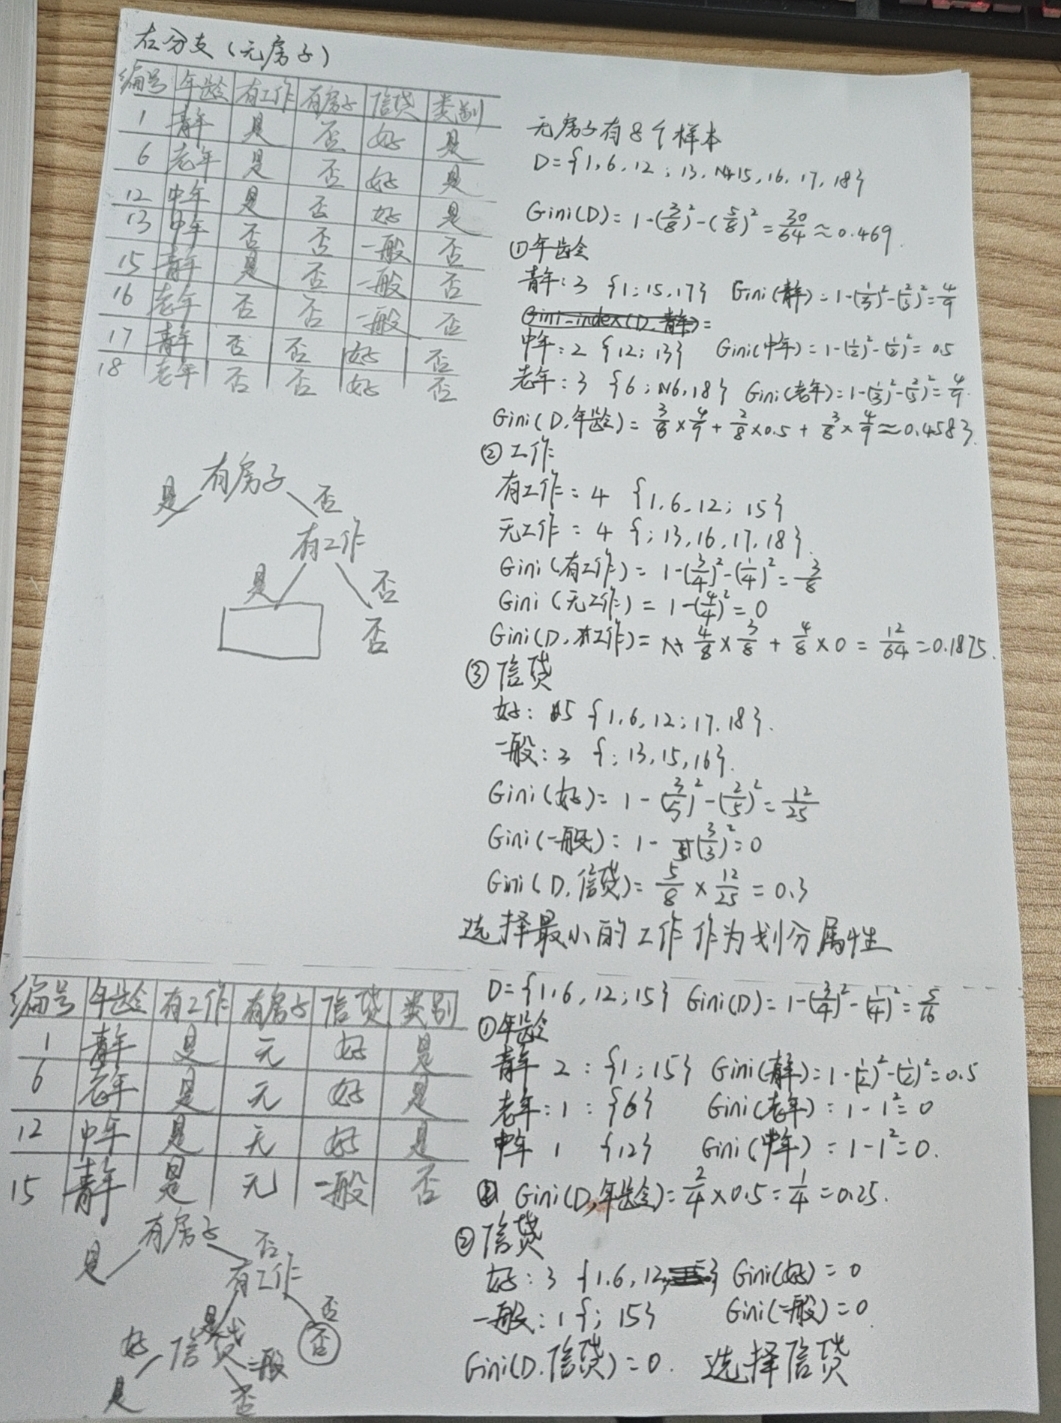 右分支(无房子)
编号 年龄 有工作 有房子 信贷 类别
1 青年 是 否 好 是
6 老年 是 否 好 是
12 中年 是 否 好 是
13 中年 否 否 一般 否
15 青年 是 否 一般 否
16 老年 否 否 一般 否
17 青年 否 否 好 否
18 老年 否 否 好 否
无房子有8个样本
D={1,6,12;13,14,15,16,17,18}
Gini(D)=1-(3/8)²-(5/8)²=30/64≈0.469
①年龄
青年:3 {1;15,17} Gini(青年)=1-(1/3)²-(2/3)²=4/9
Gini-index(D,青年)=
中年:2 {12;13} Gini(中年)=1-(1/2)²-(1/2)²=0.5
老年:3 {6;16,18} Gini(老年)=1-(1/3)²-(2/3)²=4/9
Gini(D,年龄)=3/8×4/9+2/8×0.5+3/8×4/9≈0.4583
②工作
有工作=4 {1,6,12;15}
无工作=4 {;13,16,17,18}
Gini(有工作)=1-(3/4)²-(1/4)²=3/8
Gini(无工作)=1-(4/4)²=0
Gini(D,工作)=4/8×3/8+4/8×0=12/64=0.1875.
③信贷
好:5 {1,6,12;17,18}.
一般:3 {;13,15,16}.
Gini(好)=1-(3/5)²-(2/5)²=12/25
Gini(一般)=1-(3/3)²=0
Gini(D,信贷)=5/8×12/25=0.3
选择最小的工作作为划分属性
有房子
是 否
有工作
是 否
否
编号 年龄 有工作 有房子 信贷 类别
1 青年 是 无 好 是
6 老年 是 无 好 是
12 中年 是 无 好 是
15 青年 是 无 一般 否
D={1,6,12;15} Gini(D)=1-(3/4)²-(1/4)²=5/16
①年龄
青年 2:{1;15} Gini(青年)=1-(1/2)²-(1/2)²=0.5
老年:1:{6} Gini(老年)=1-1²=0
中年 1 {12} Gini(中年)=1-1²=0.
Gini(D,年龄)=2/4×0.5=1/4=0.25.
②信贷
好:3 {1,6,12} Gini(好)=0
一般:1{;15} Gini(一般)=0
Gini(D,信贷)=0. 选择信贷
有房子
是 否
有工作
是 否
否
信贷
好 一般
是 否